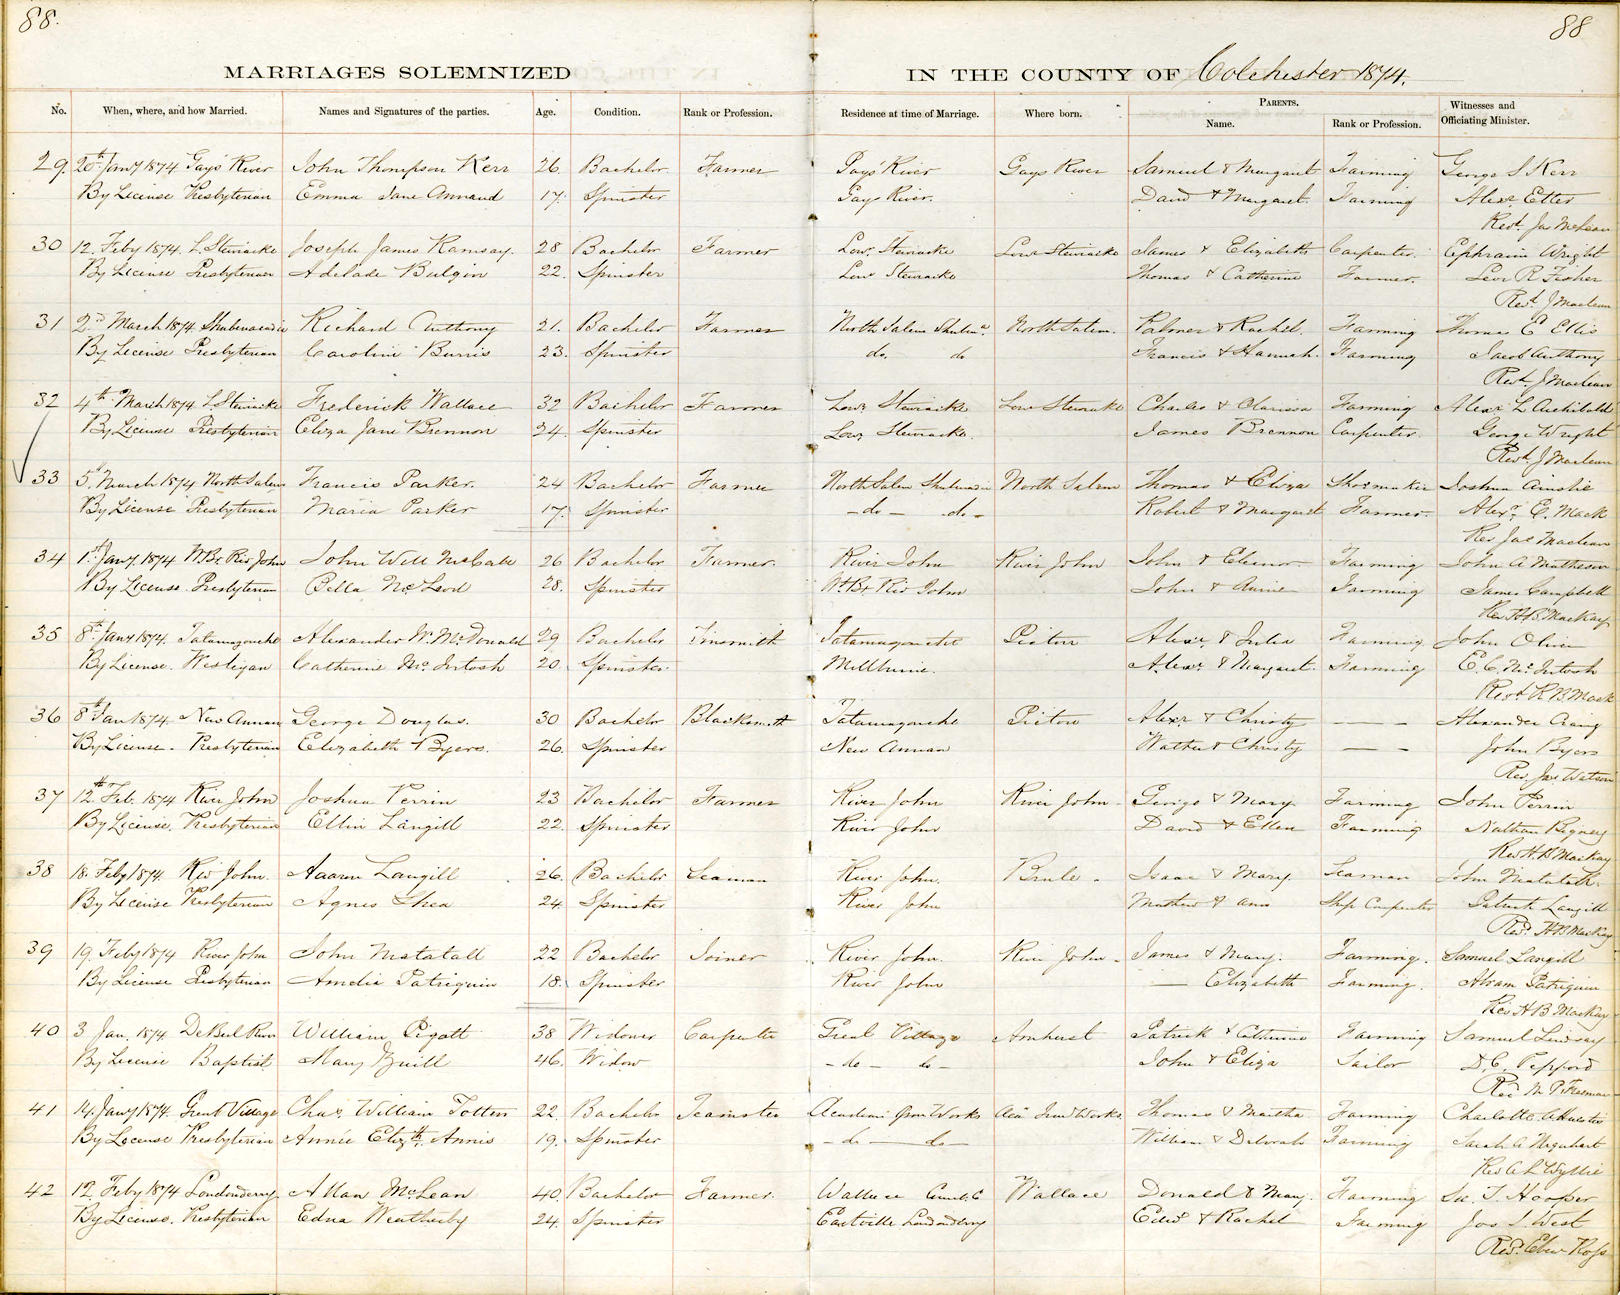 88. 88
MARRIAGES SOLEMNIZED IN THE COUNTY OF Colchester 1874.
No. When, where, and how Married. Names and Signatures of the parties. Age. Condition. Rank or Profession. Residence at time of Marriage. Where born. PARENTS. Name. Rank or Profession. Witnesses and Officiating Minister.
29. 20th Jany 1874 Gays River John Thompson Kerr 26. Bachelor Farmer Gays River Gays River Samuel & Margaret Farming George S Kerr
By License Presbyterian Emma Jane Annand 17. Spinster Gays River. David & Margaret. Farming Alexr Etter
Revd. Jas McLean
30 12. Feby 1874. L Stewiacke Joseph James Ramsay. 28 Bachelor Farmer Lowr. Stewiacke Lowr Stewiacke James & Elizabeth Carpenter. Ephraim Wright
By License Presbyterian Adelade Bulgin 22. Spinster Lowr Stewiacke Thomas & Catherine Farmer. Levi R Fisher
Revd. J Maclean
31 2nd March 1874. Shubenacadie Richard Anthony 21. Bachelor Farmer North Salem Shuba North Salem. Palmer & Rachel. Farming Thomas E Ellis
By License Presbyterian Caroline Burris 23. Spinster do. do Francis & Hannah. Farming Jacob Anthony
Revd. J Maclean
32 4th March 1874 L Stewiacke Frederick Wallace 32 Bachelor Farmer Lowr Stewiacke Lowr Stewiacke Charles & Clarissa Farming Alexr L Archibald
By License Presbyterian Eliza Jane Brennon 24. Spinster Lowr Stewiacke. James Brennon Carpenter. George Wright
Revd J Maclean
33 5th March 1874 North Salem Francis Parker. 24 Bachelor Farmer North Salem Shubenadie North Salem Thomas & Eliza Shoemaker Joshua Ainslie
By License Presbyterian Maria Parker 17. Spinster - do - do - Robert & Margaret Farmer. Alexr. E. Mack
Rev Jas Maclean
34 1st Jany. 1874 W Br. Riv John John Will McCabe 26 Bachelor Farmer. River John River John John & Eleanor Farming John A Matheson
By License. Presbyterian Bella McLeod 28. Spinster W. Br Riv John John & Annie Farming James Campbell
Rev H B MacKay
35 8th Jany 1874. Tatamagouche Alexander W. McDonald 29 Bachelor Tinsmith Tatamagouche Pictou Alexr & Julia Farming John Oliver
By License. Wesleyan Catherine McIntosh 20. Spinster Millburne. Alexr & Margaret. Farming E. C. McIntosh
Revd R B Mack
36 8th Jan 1874 New Annan George Douglas. 30 Bachelor Blacksmith Tatamagouche Pictou Alexr & Christy — — Alexander Craig
By License. Presbyterian Elizabeth Byers. 26. Spinster New Annan Walter & Christy — — John Byers
Rev. Jas Watson
37 12th Feb. 1874 River John Joshua Perrin 23 Bachelor Farmer River John River John. George & Mary Farming John Perrin
By License. Presbyterian Ellin Langill 22. Spinster River John David & Ellen Farming Nathan Bigney
Rev H. B MacKay
38 18. Feby 1874. Riv John. Aaron Langill 26. Bachelor Seaman River John. Brule. Isaac & Mary Seaman John Matatall.
By License Presbyterian Agnes Shea 24. Spinster River John Mathew & Ann Ship Carpenter Patrick Langill
Revd. H B MacKay
39 19. Feby 1874 River John John Matatall 22 Bachelor Joiner River John. River John. James & Mary. Farming. Samuel Langill
By License Presbyterian Amelia Patriquin 18. Spinster River John — Elizabeth Farming. Abram Patriquin
Rev H B MacKay
40 3 Jan. 1874. DeBert River William Pigott 38 Widower Carpenter Great Village Amherst Patrick & Catherine Farming Samuel Lindsay
By License Baptist Mary Guill 46. Widow - do - do - John & Eliza Tailor D. C. Peppord
Rev M P Freeman
41 14. Jany 1874. Great Village Chas. William Totten 22. Bachelor Teamster Acadian Iron Works Aca. Iron Works Thomas & Martha Farming Charlotte
By License Presbyterian Annie Elizth. Annis 19. Spinster - do - do - William & Deborah Farming Sarah A Urquhart
Rev A L Wyllie
42 12. Feby 1874 Londonderry Allan McLean 40. Bachelor Farmer. Wallace Cumb. C Wallace Donald & Mary. Farming T. Hooper
By License. Presbyterian Edna Weatherby 24. Spinster Eastville Londonderry Edwd & Rachel Farming Jos I. West
Revd. Eben Ross